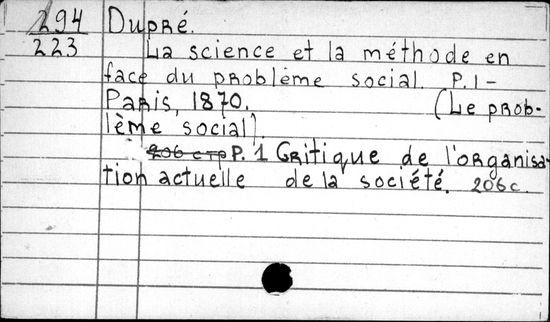 294 Dupré.
223 La science et la méthode en
face du problème social. P. 1-
Paris, 1870. (Le prob-
lème social)
206 стр P. 1 Critique de l'organisa-
tion actuelle de la société. 206 с.